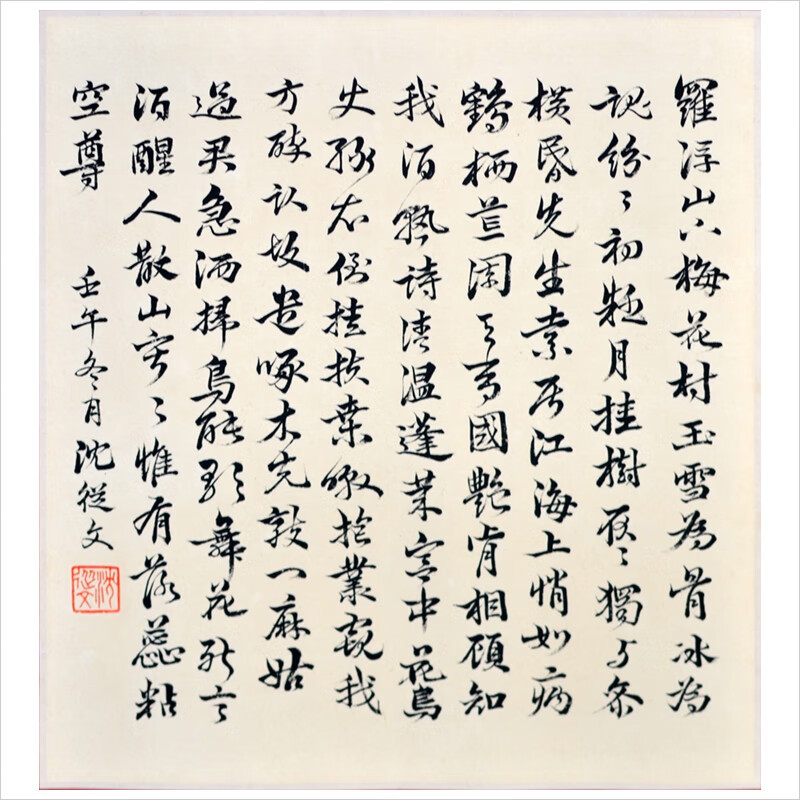 羅浮山下梅花村玉雪為骨冰為
魂紛〻初疑月挂樹耿〻獨与參
橫昏先生索居江海上悄如病
鶴栖荒園天香國艷肯相顧知
我酒熟詩清溫蓬萊宮中花鳥
使綠衣倒挂扶桑暾抱叢窺我
方醉臥故遣啄木先敲门麻姑
過君急洒掃鳥能歌舞花能言
酒醒人散山寂〻惟有落蕊粘
空尊
壬午冬月沈從文
沈從文